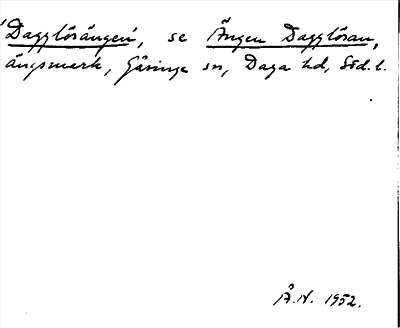 'Dagglösängen', se Ängen Dagglösan,
ängsmark, Gåsinge sn, Daga hd, Söd. l.
Å.N. 1952.